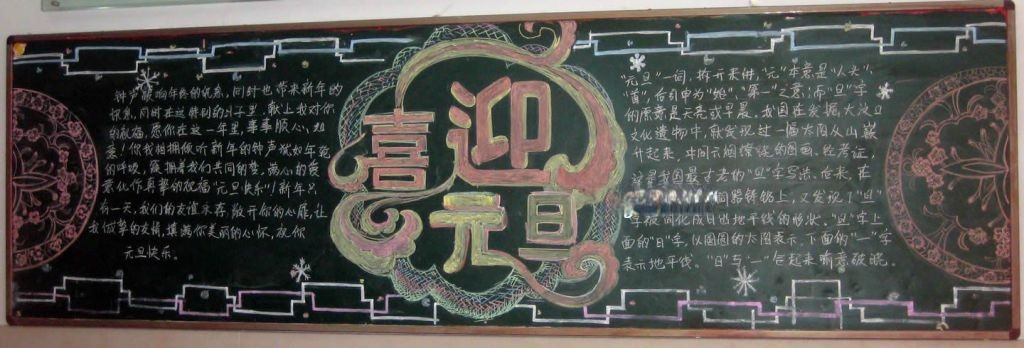 钟声敲响年终的优容,同时也带来新年的
讯息,同时在这特别的日子里,献上我对你
的祝福,愿你在这一年里,事事顺心,如
意!你我相拥倾听新年的钟声犹如年轮
的呼吸,簇拥着我们共同的梦,满心的爱
意化作真挚的祝福"元旦快乐"!新年只
有一天,我们的友谊永存,敞开你的心扉,让
我似挚的友情,填满你美丽的心怀,祝你
元旦快乐。
喜迎
元旦
"元旦"一词,拆开来讲,"元"本意是"人头"、
"首",后引申为"始"、"第一"之意;而"旦"字
的原意是天亮或早晨。我国在发掘大汶口
文化遗物中,就发现过一幅太阳从山巅
升起来,中间云烟缭绕的图画。经考证,
这是我国最古老的"旦"字写法。后来,在
铜器铸铭上,又发现了"旦"
字被简化成日出地平线的形状。"旦"字上
面的"日"字,以圆圆的太阳表示,下面的"一"字
表示地平线。"日"与"一"合起来寓意破晓。